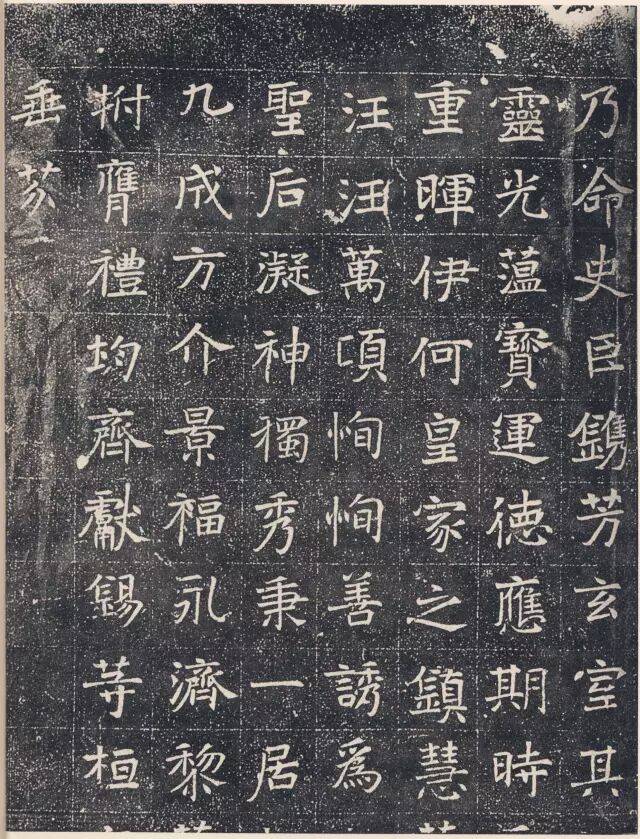 乃命史臣鐫芳玄室其
靈光薀寶運徳應期時
重暉伊何皇家之顗慧
汪汪萬頃恂恂善誘爲
聖后凝神獨秀秉一居
九成方介景福永濟黎
拊膺禮均齊獻錫苻桓
垂芬